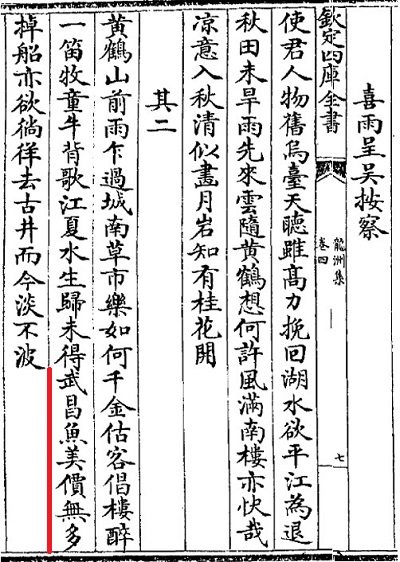 喜雨呈吳按察
欽定四庫全書
龍洲集
卷四
七
使君人物舊烏臺天聽雖高力挽回湖水欲平江為退
秋田未旱雨先來雲隨黃鶴想何許風滿南樓亦快哉
涼意入秋清似盡月岩知有桂花開
其二
黃鶴山前雨乍過城南草市樂如何千金估客倡樓醉
一笛牧童牛背歌江夏水生歸未得武昌魚美價無多
棹船亦欲徜徉去古井而今淡不波